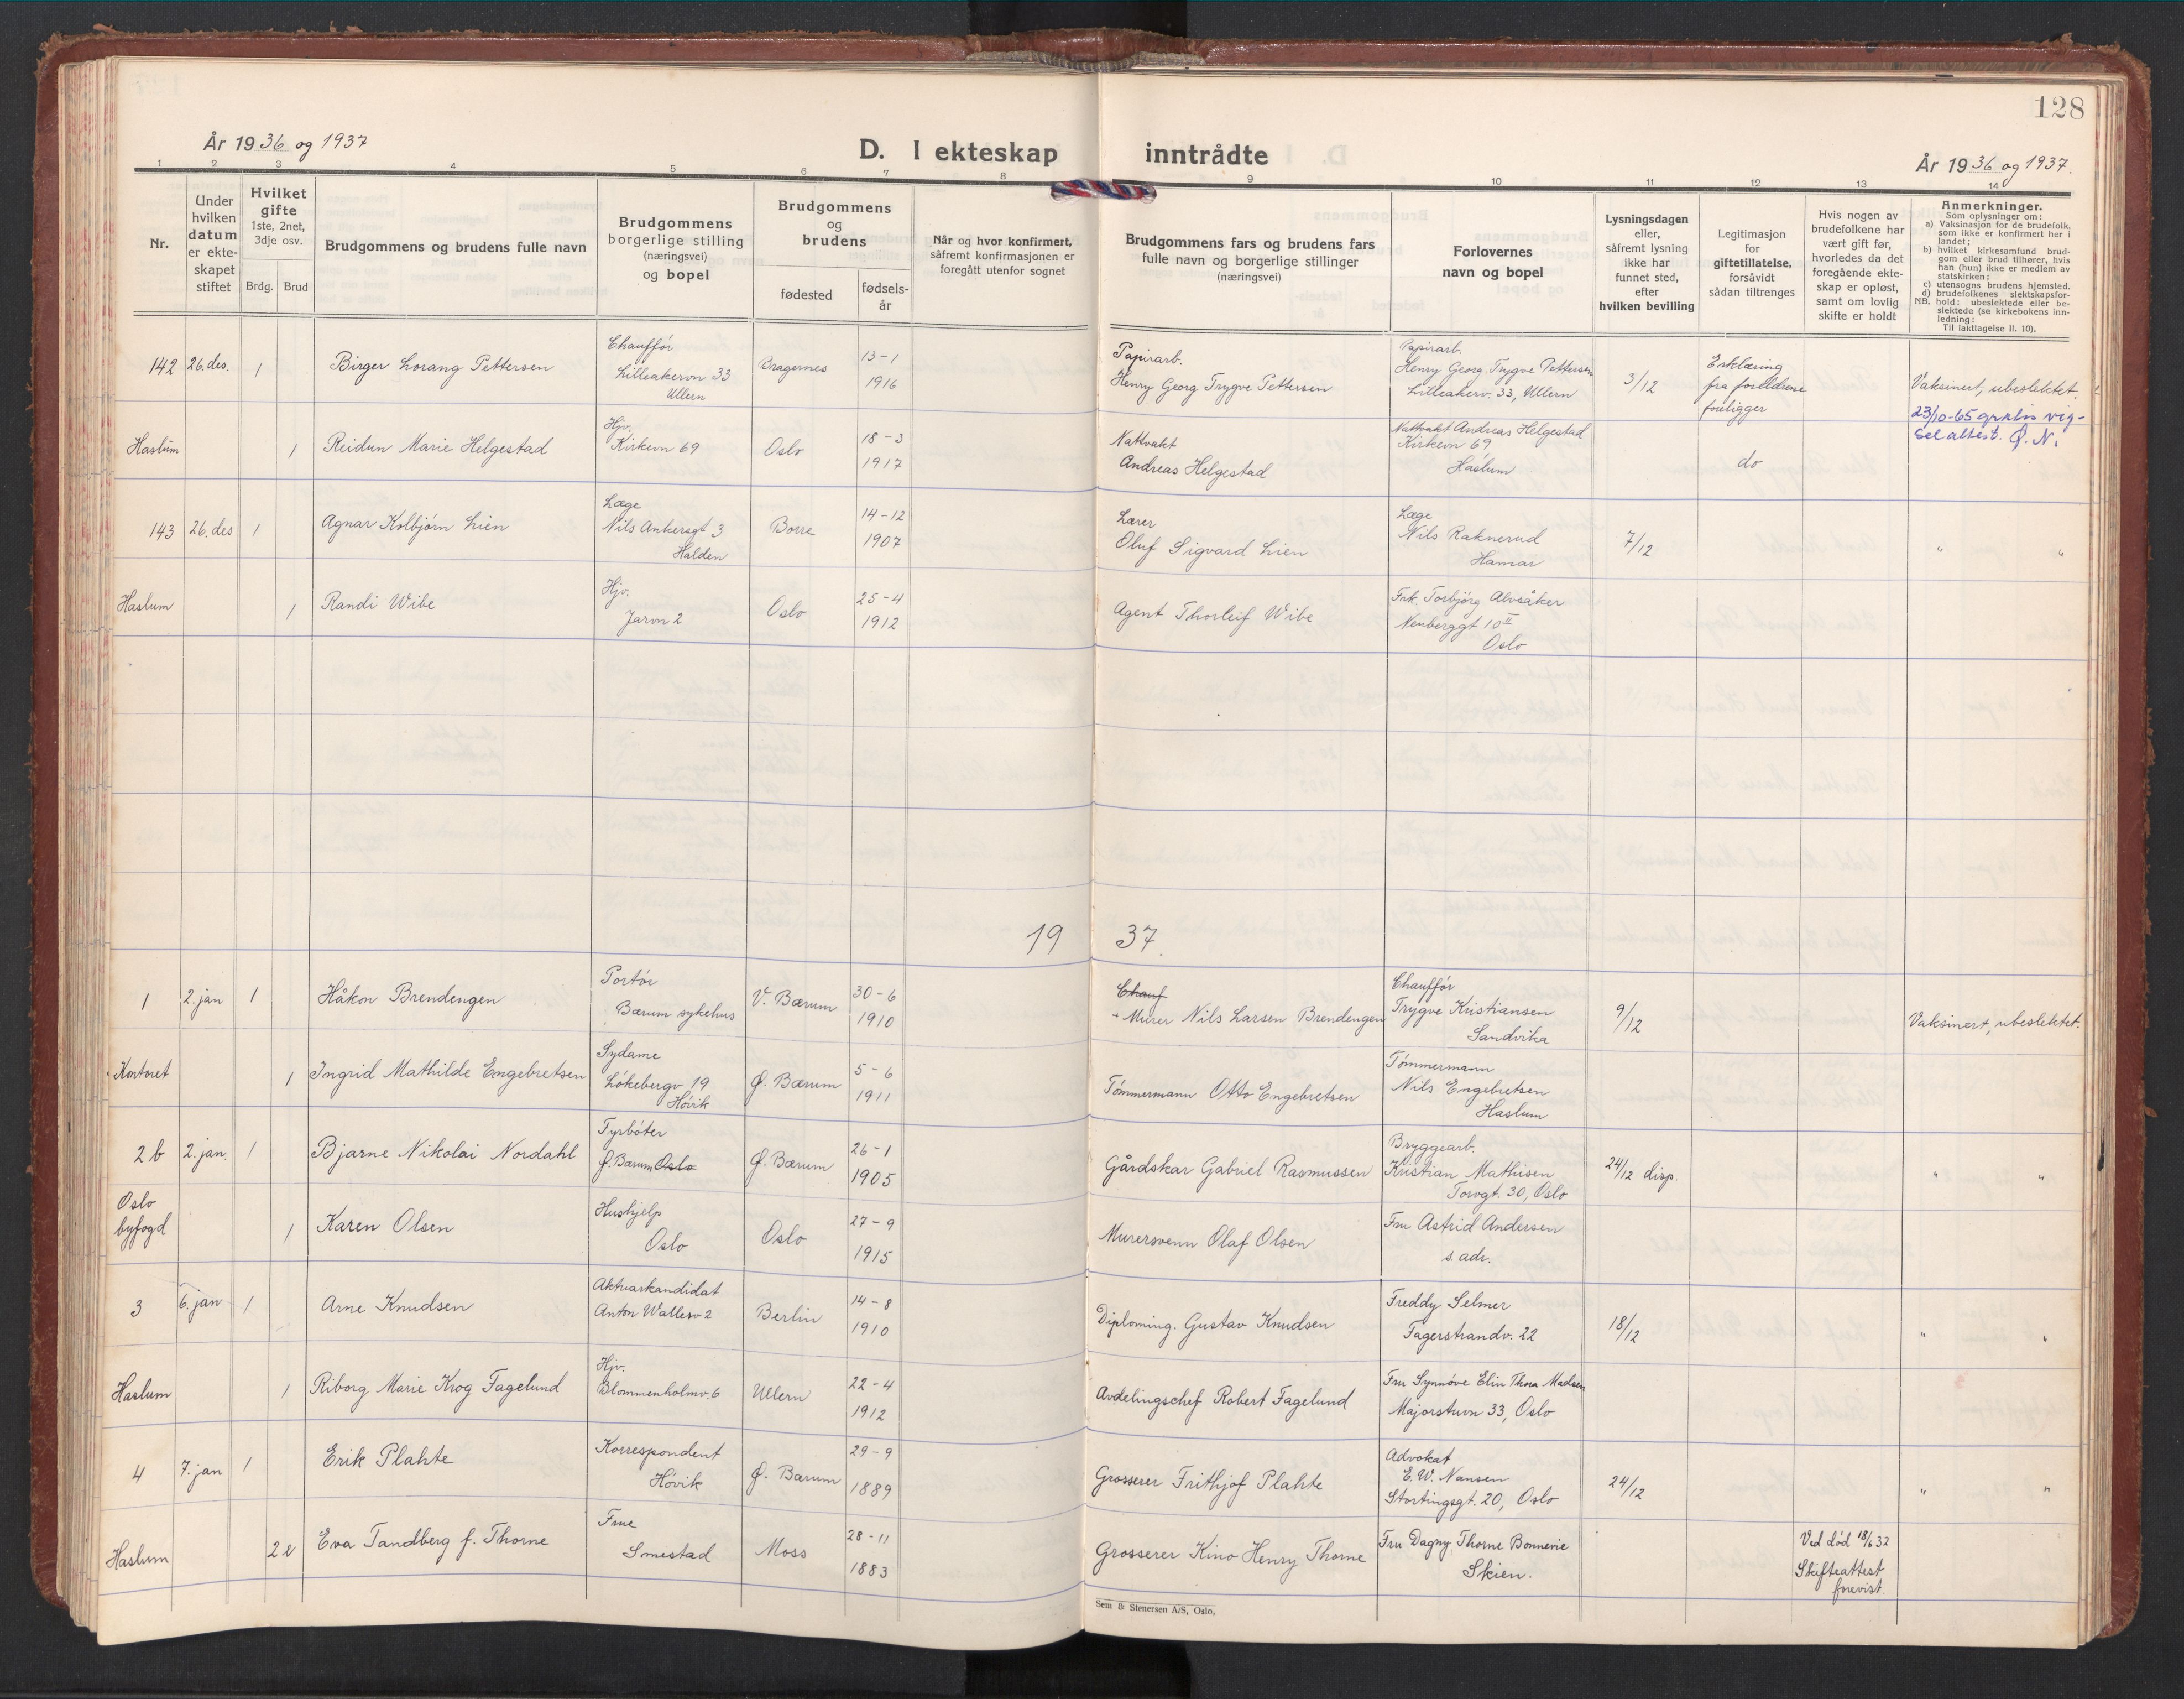 128
År 1936 og 1937
D. I ekteskap inntrådte
År 1936 og 1937.
1 2 3 4 5 6 7 8 9 10 11 12 13 14
Nr.
Under hvilken datum er ekte-skapet stiftet
Hvilket gifte
1ste, 2net, 3dje osv.
Brdg. Brud
Brudgommens og brudens fulle navn
Brudgommens borgerlige stilling (næringsvei) og bopel
Brudgommens og brudens
fødested
fødsels-år
Når og hvor konfirmert, såfremt konfirmasjonen er foregått utenfor sognet
Brudgommens fars og brudens fars fulle navn og borgerlige stillinger (næringsvei)
Forlovernes navn og bopel
Lysningsdagen eller, såfremt lysning ikke har funnet sted, efter hvilken bevilling
Legitimasjon for giftetillatelse, forsåvidt sådan tiltrenges
Hvis nogen av brudefolkene har vært gift før, hvorledes da det foregående ekte-skap er opløst, samt om lovlig skifte er holdt
Anmerkninger.
Som oplysninger om:
a) Vaksinasjon for de brudefolk, som ikke er konfirmert her i landet;
b) hvilket kirkesamfund brud-gom eller brud tilhører, hvis han (hun) ikke er medlem av statskirken;
c) utensogns brudens hjemsted.
d) brudefolkenes slektskapsfor-hold: ubeslektede eller be-slektede (se kirkebokens inn-ledning:
NB.
Til iakttagelse II. 10).
142 26. des. 1 Birger Lorang Pettersen
Chauffør
Lilleakervn 33
Ullern
Bragernes
13-1
1916
Papirarb.
Henry Georg Trygve Pettersen
Papirarb.
Henry Georg Trygve Pettersen
Lilleakerv. 33, Ullern
3/12
Erklæring
fra foreldrene
foreligger
Vaksinert, ubeslektet.
23/10-65 gratis vig-
sel attest. Ø. N.
Haslum 1 Reidun Marie Helgestad
Hjv.
Kirkevn 69
Oslo
18-3
1917
Nattvakt
Andreas Helgestad
Nattvakt Andreas Helgestad
Kirkevn 69
Haslum
do
143 26. des 1 Agnar Kolbjørn Lien
Læge
Nils Ankersgt 3
Halden
Borre
14-12
1907
Lærer
Oluf Sigvard Lien
Læge
Nils Raknerud
Hamar
7/12
" "
Haslum 1 Randi Wibe
Hjv.
Jarvn 2
Oslo
25-4
1912
Agent Thorleif Wibe
Frk. Torbjørg Alvsåker
Neuberggt 10 II
Oslo
19 37.
1 2. jan 1 Håkon Brendengen
Portør
Bærum sykehus
V. Bærum
30-6
1910
Chauf
Murer Nils Larsen Brendengen
Chauffør
Trygve Kristiansen
Sandvika
9/12
Vaksinert, ubeslektet.
Kontoret 1 Ingrid Mathilde Engebretsen
Sydame
Løkebergv 19
Høvik
Ø. Bærum
5-6
1911
Tømmermann Otto Engebretsen
Tømmermann
Nils Engebretsen
Haslum
2 b 2. jan. 1 Bjarne Nikolai Nordahl
Fyrbøter
Ø. Bærum Oslo
Ø. Bærum
26-1
1905
Gårdskar Gabriel Rasmussen
Bryggearb.
Kristian Mathisen
Torvgt. 30, Oslo
24/12 disp.
" "
Oslo byfogd 1 Karen Olsen
Hushjelp
Oslo
Oslo
27-9
1915
Murersvenn Olaf Olsen
Fru Astrid Andersen
s. adr.
3 6. jan 1 Arne Knudsen
Aktuarkandidat
Anton Wallesv 2
Berlin
14-8
1910
Diploming. Gustav Knudsen
Freddy Selmer
Fagerstrandv. 22
18/12
" "
Haslum 1 Riborg Marie Krog Fagelund
Hjv.
Blommenholmv. 6
Ullern
22-4
1912
Avdelingschef Robert Fagelund
Fru Synnøve Elin Thora Madsen
Majorstuvn 33, Oslo
4 7. jan 1 Erik Plahte
Korrespondent
Høvik
Ø. Bærum
29-9
1889
Grosserer Frithjof Plahte
Advokat
E. W. Nansen
Stortingsgt. 20, Oslo
24/12
" "
Haslum 2 e Eva Tandberg f. Thorne
Frue
Smestad
Moss
28-11
1883
Grosserer Kino Henry Thorne
Fru Dagny Thorne Bonnevie
Skien.
Ved død 18/6 32
Skifteattest
forevist.
Sem & Stenersen A/S, Oslo,